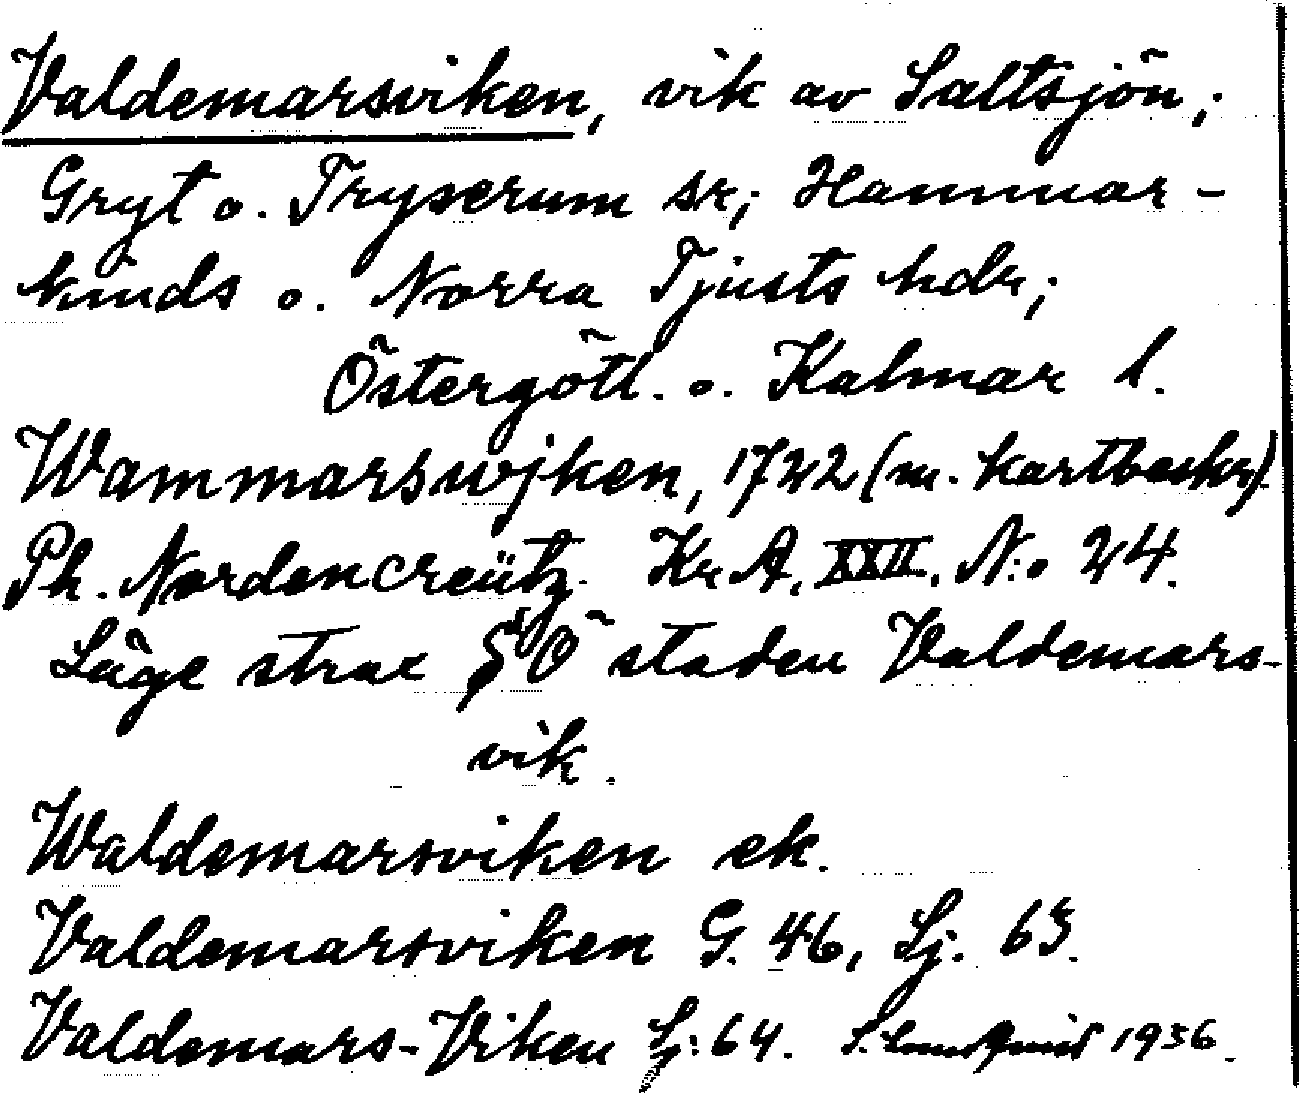 Valdemarsviken, vik av Saltsjön;
Gryt o. Tryserum sr; Hammar-
kinds o. Norra Tjusts hdr;
Östergötl. o. Kalmar l.
Wammarswjken, 1722 (m. kartbeskr)
Ph. Nordencreütz. Kr A. XXII. N:o 24.
Läge strax Ö staden Valdemars-
vik.
Waldemarsviken ek.
Valdemarsviken G. 46, Sj. 65.
Valdemars-Viken Sj. 64. S. 1936.